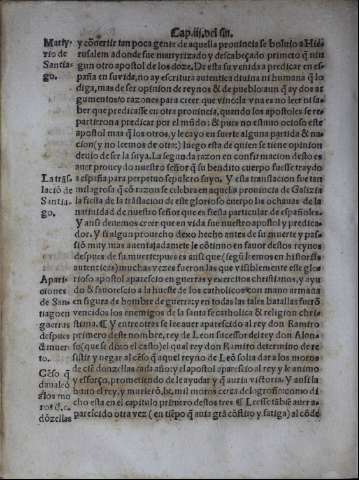 Cap.iii. del sn.
Marty-
rio de
Santia-
go.
y cõuertir tan poca gente de aquella prouincia se boluio a Hie-
rusalem adonde fue martyrizado y descabeçado primero q̃ nin
gun otro apostol de los doze. De esta su venida y predicar en es-
paña en su vida, no ay escritura autentica diuina ni humana q̃ lo
diga, mas de ser opinion de reynos & de pueblo aun q̃ ay dos ar
gumentos o razones para creer que vino: la vna es no leer ni sa-
ber que predicasse en otra prouincia, quando los apostoles se re-
partieron a predicar por el mũdo: & pues no estuuo ocioso este
apostol mas q̃ los otros, y le cayo en suerte alguna partida & na-
cion (y no leemos de otra:) luego esta de quien se tiene opinion
deuio de ser la suya. La segunda razon en confirmacion desto es
auer proueydo nuestro señor q̃ su bendito cuerpo fuesse traydo
La trãs
laciõ de
Santia-
go.
a españa para perpetuo sepulcro suyo. Y esta translacion fue tan
milagrosa q̃ cõ razon se celebra en aquella prouincia de Galizia
la fiesta de la trãslacion de este glorioso cuerpo los ochauas de la
natiuidad de nuestro señor que es fiesta particular de españoles.
Y ansi deuemos creer que en vida fue nuestro apostol y predica-
dor. Y si algun prouecho dexo hecho antes de su muerte y pas-
sió muy mas auentajadamẽte le cõtinuo en fauor destos reynos
despues de su muerte: pues es ansi que (segũ leemos en historias
autenticas) muchas vezes fueron las que visiblemente este glo-
Apari-
ciones
de San-
tiago en
guerras
despues
de
muerto.
rioso apostol aparescio en guerras y exercitos christianos, y ayu-
do & fauorescio a la hueste de los catholicos con mano armada
en figura de hombre de guerra: y en todas las tales batallas fuerõ
vencidos los enemigos de la santa fe catholica & religion chris-
tiana. ¶ Y entre otras se lee auer aparescido al rey don Ramiro
primero deste nombre, rey de Leon sucessor del rey don Alon-
so (que se dixo el casto) al qual rey don Ramiro determino de re-
sistir y negar al cẽso q̃ aquel reyno de Leõ solia dar a los moros
Cẽso q̃
daua leõ
a los mo
ros d. c.
dõzellas
de ciẽ dõnzellas cada año: y el apostol aparescio al rey y le animo
y esforço, prometiendo de le ayudar y q̃ auria victoria. Y ansi la
huuo el rey, y murierõ, lx. mil moros cerca de logroño: como di
cho esta en el capitulo primero destos tres. ¶ Leesse tãbiẽ auer a-
parescido otra vez (en tiẽpo q̃ auia grã cõflito y fatiga) al cõde